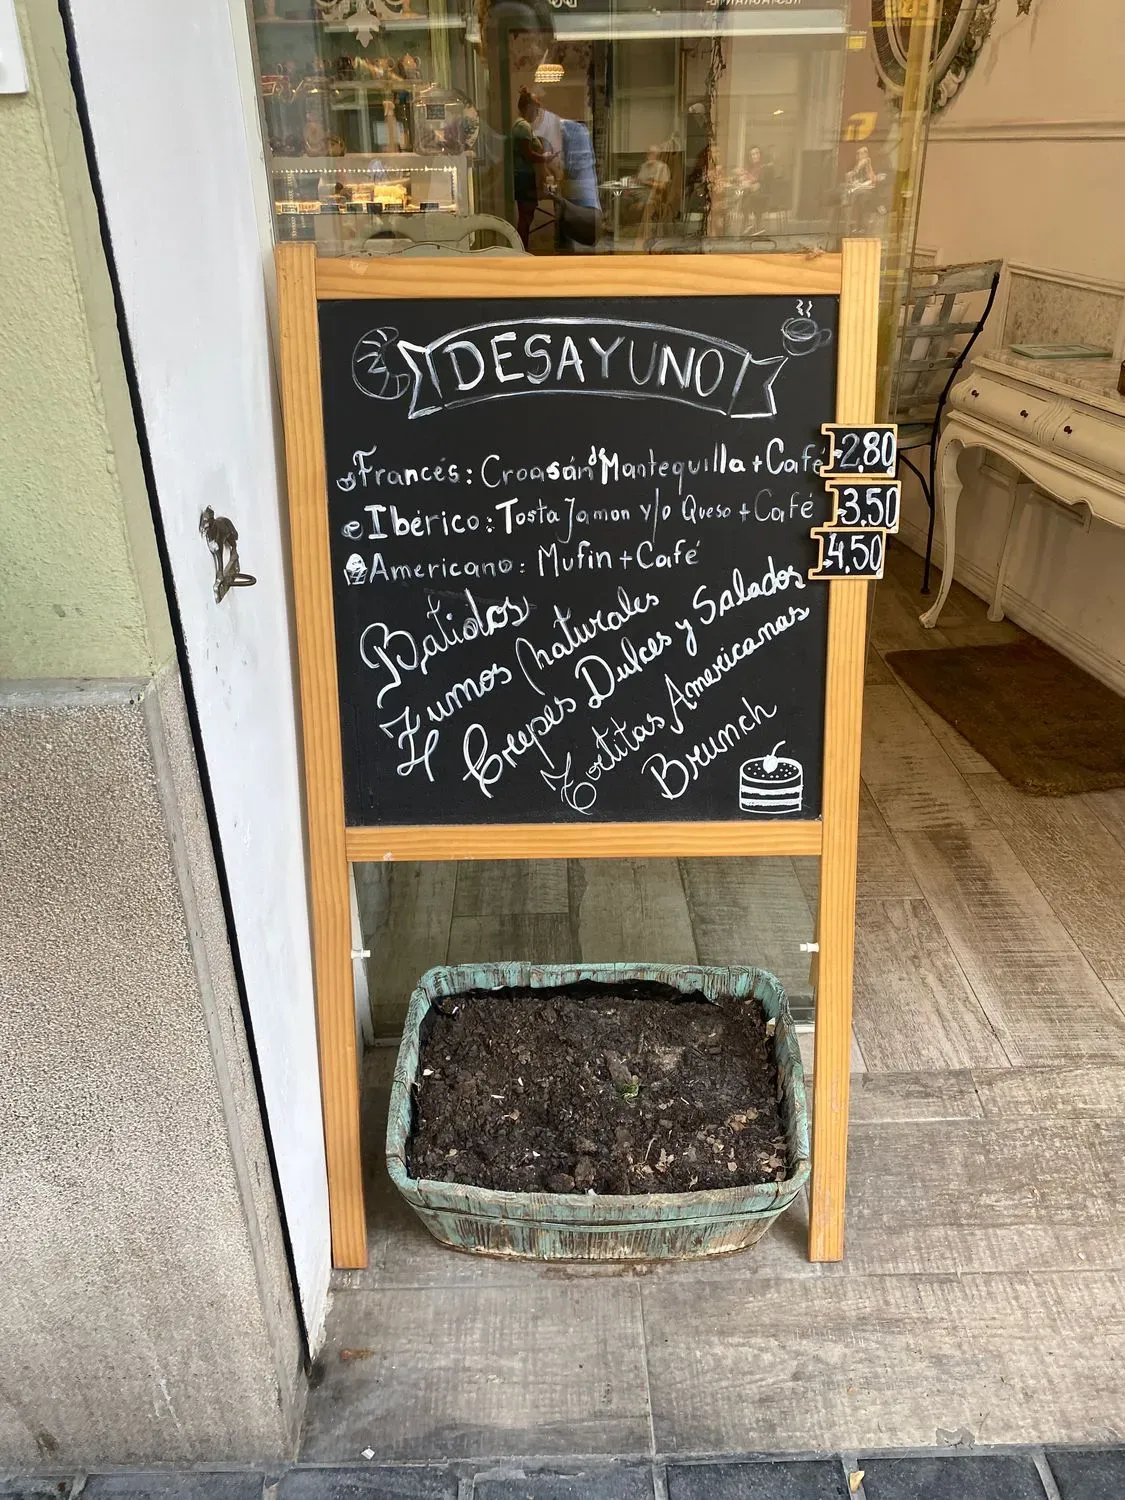 DESAYUNO
Francés: Croasán d' Mantequilla + Café 2,80
Ibérico: Tosta Jamon y/o Queso + Café 3,50
Americano: Mufin + Café 4,50
Batidos
Zumos naturales
Crepes Dulces y Salados
Tortitas Americanas
Brunch